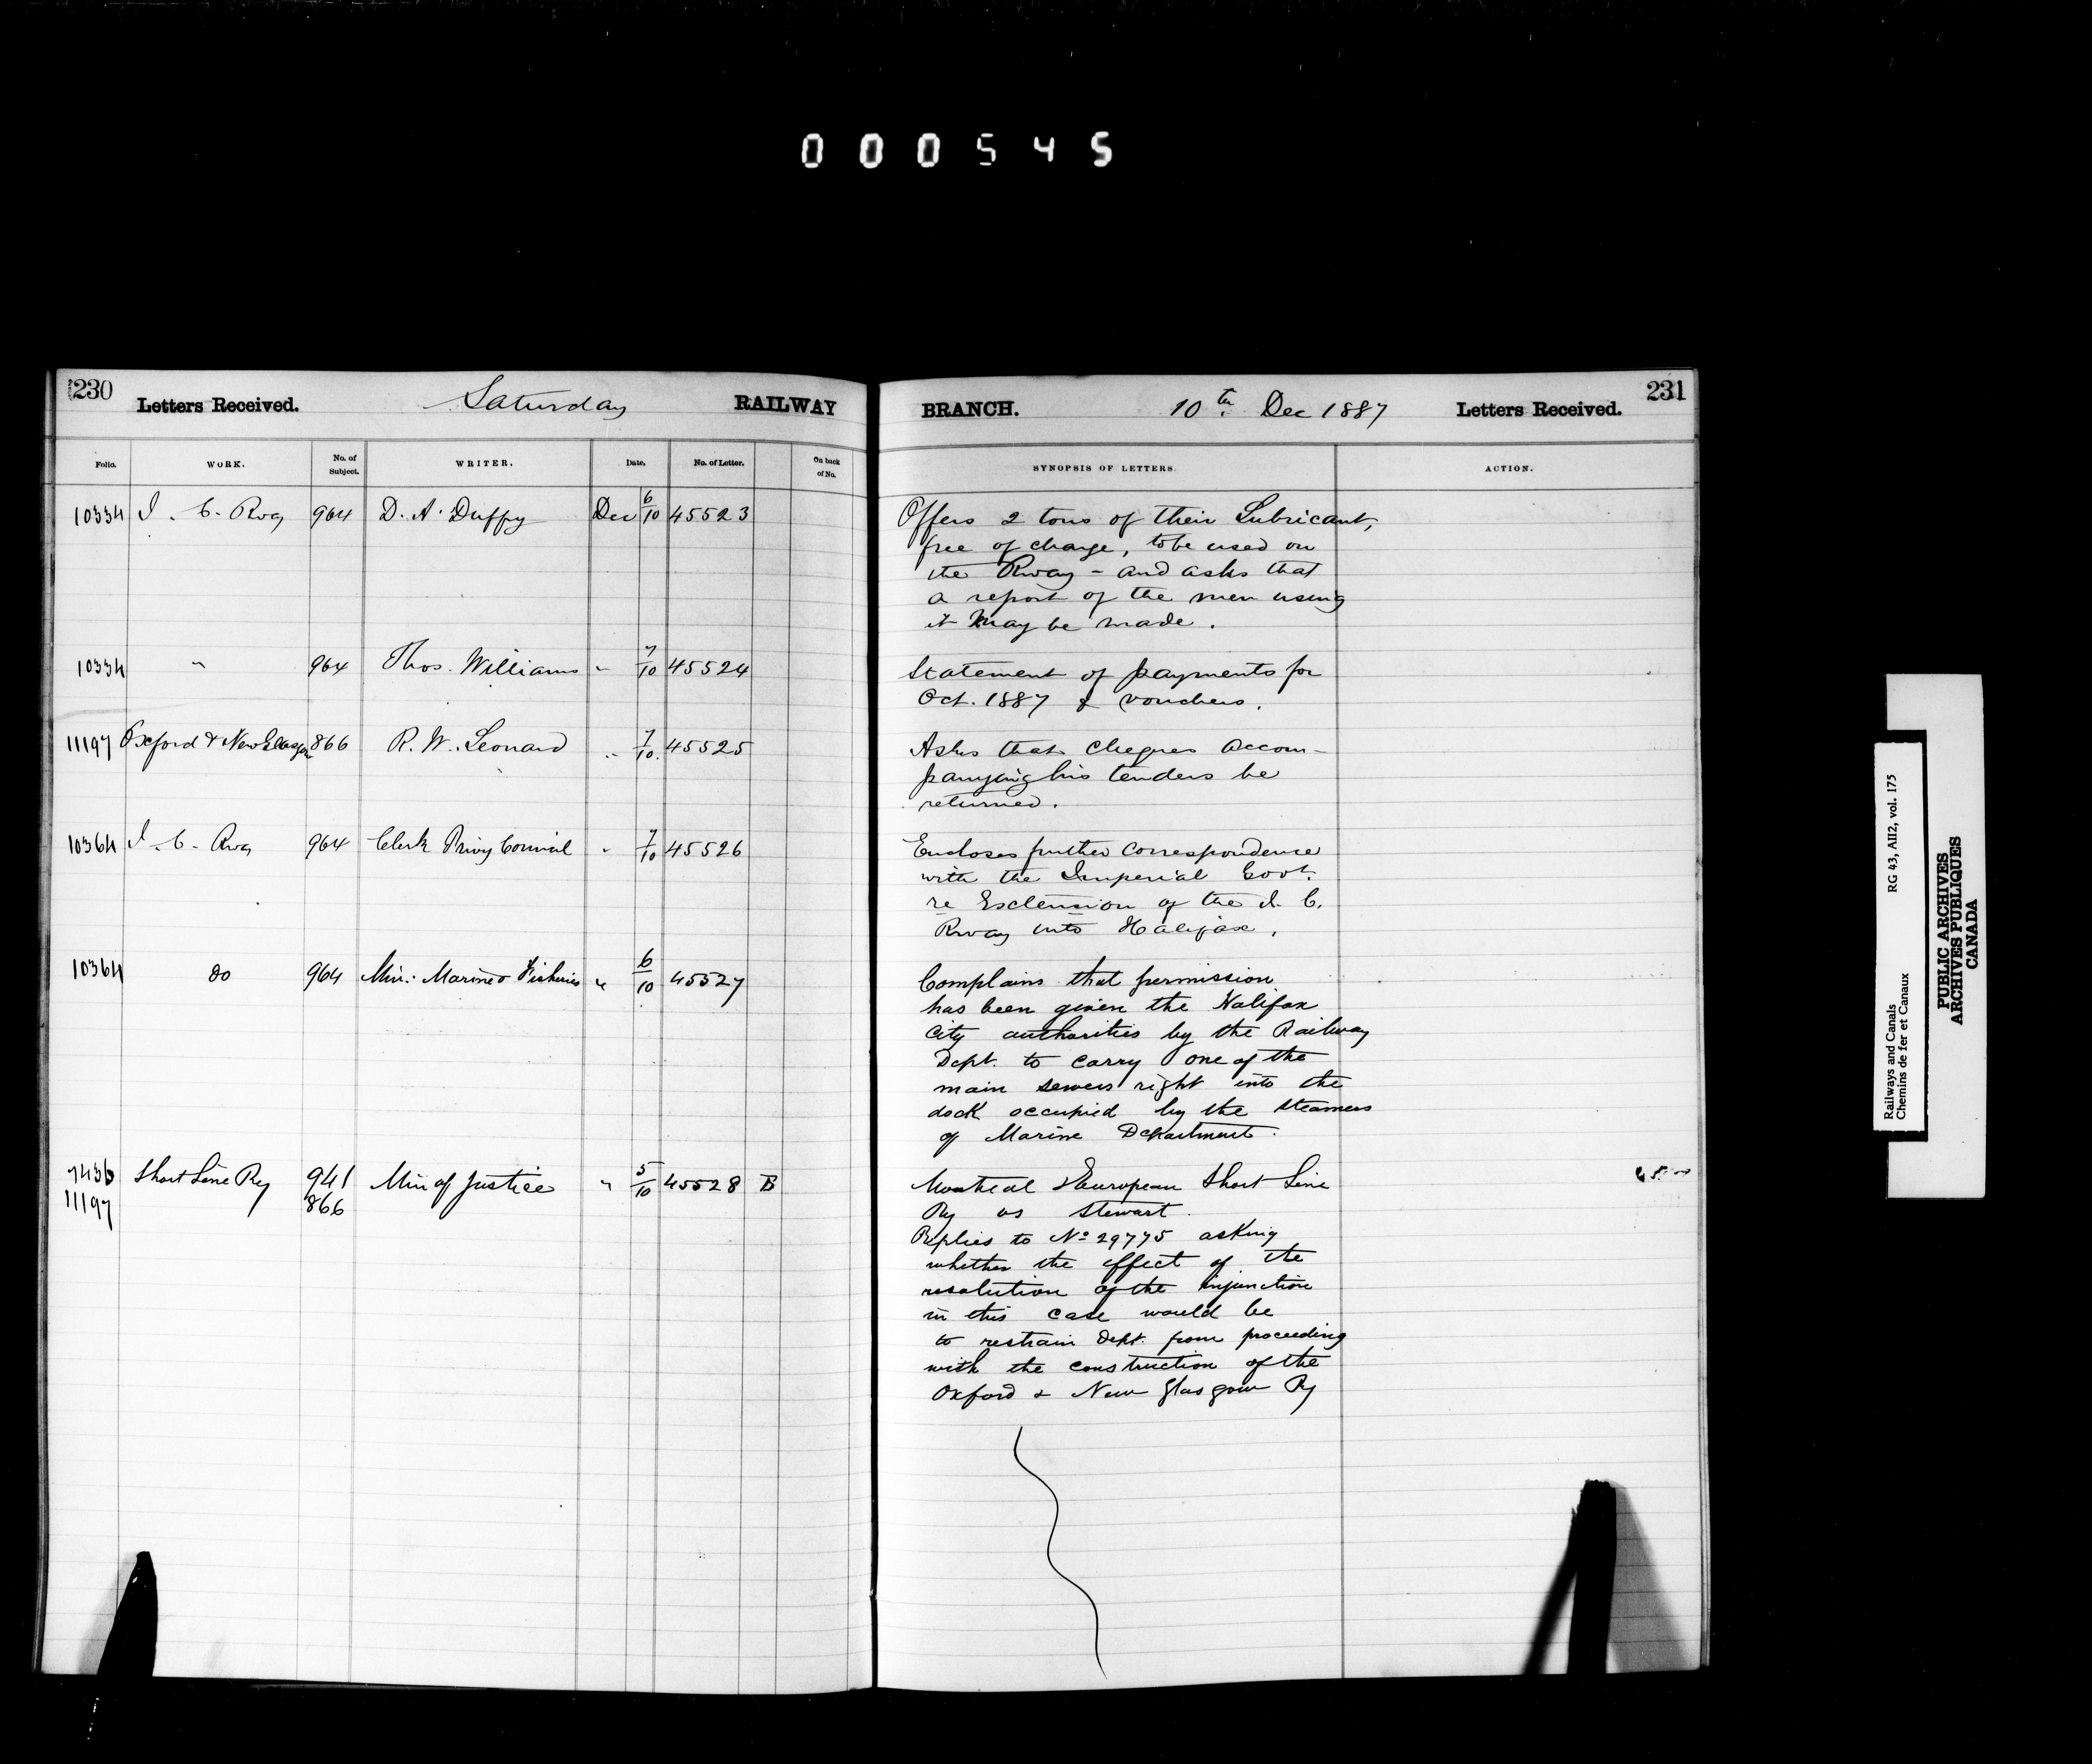 000545
230
Letters Received. Saturday RAILWAY
BRANCH. 10th Dec 1887 Letters Received.
231
Folio. WORK. No. of Subject. WRITER. Date. No. of Letter. On back of No.
SYNOPSIS OF LETTERS. ACTION.
10334 I. C. Rwy 964 D. A. Duffy Dec 6/10 45523
Offers 2 tons of their Lubricant,
free of charge, to be used on
the Rway - and asks that
a report of the men using
it may be made.
10334 " 964 Thos. Williams " 7/10 45524
Statement of payments for
Oct. 1887 & vouchers.
11197 Oxford & New Glasgow 866 R. W. Leonard " 7/10 45525
Asks that cheques accom-
panying his tenders be
returned.
10364 I. C. Rwy 964 Clerk Privy Council " 7/10 45526
Encloses further correspondence
with the Imperial Govt.
re Extension of the I. C.
Rway into Halifax.
10364 do 964 Min. Marine & Fisheries " 6/10 45527
Complains that permission
has been given the Halifax
City authorities by the Railway
Dept. to carry one of the
main sewers right into the
dock occupied by the steamers
of Marine Department.
7436 Short Line Ry 941 Min of Justice " 5/10 45528 B
11197 866
Montreal & European Short Line
Ry vs Stewart.
Replies to No 29775 asking
whether the effect of the
resolution of the injunction
in this case would be
to restrain Dept. from proceeding
with the construction of the
Oxford & New Glasgow Ry
Railways and Canals RG 43, AII2, vol. 175
Chemins de fer et Canaux
PUBLIC ARCHIVES
ARCHIVES PUBLIQUES
CANADA